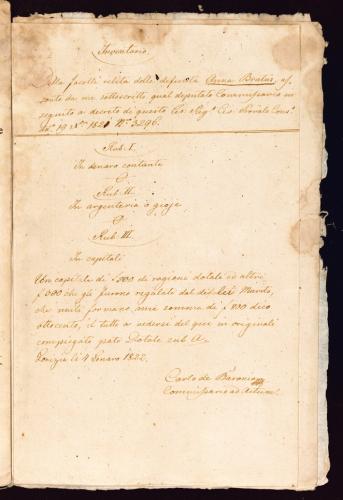 Inventario
Della facoltà relita della defunta Anna Bratus, as,
sonto da me sottoscritto qual deputato Commissario in
seguito a decreto di questo Ces. Reg.
19 1821 N. 3296.
Rub. I.
In denaro contante
Rub. II.
In argenteria o gioje
Rub. III.
In capitali
Un capitale di di ragione dotale ed altri
che gli furono regalati dal di lei Marito,
che unite formano una somma di dico
ottocento, il tutto a vedersi dal qui in originali
compiegato Dotale sub A.
Gorizia li 4 Genaro 1822.
Carlo de
Commissario ad